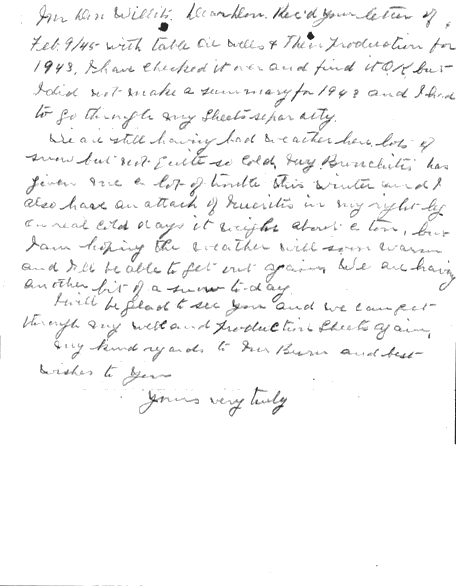 Mr Don Willits. Dear Don. Rec'd your letter of
Feb. 9/45 with table Oil Wells & Their Production for
1943, I have checked it over and find it O.K. but
I did not make a summary for 1943 and I had
to go through my sheets separatly.
We are still having bad weather here, lots of
snow but not quite so cold, my Bronchitis has
given me a lot of trouble this winter and I
also have an attack of Neuritis in my right leg
on real cold days it weighs about a ton, but
I am hoping the weather will soon warm
and I'll be able to get out again, We are having
another bit of a snow to-day.
I will be glad to see you and we can get
through my well and production sheets again,
My kind regards to Mr and best
wishes to You
Yours very truly